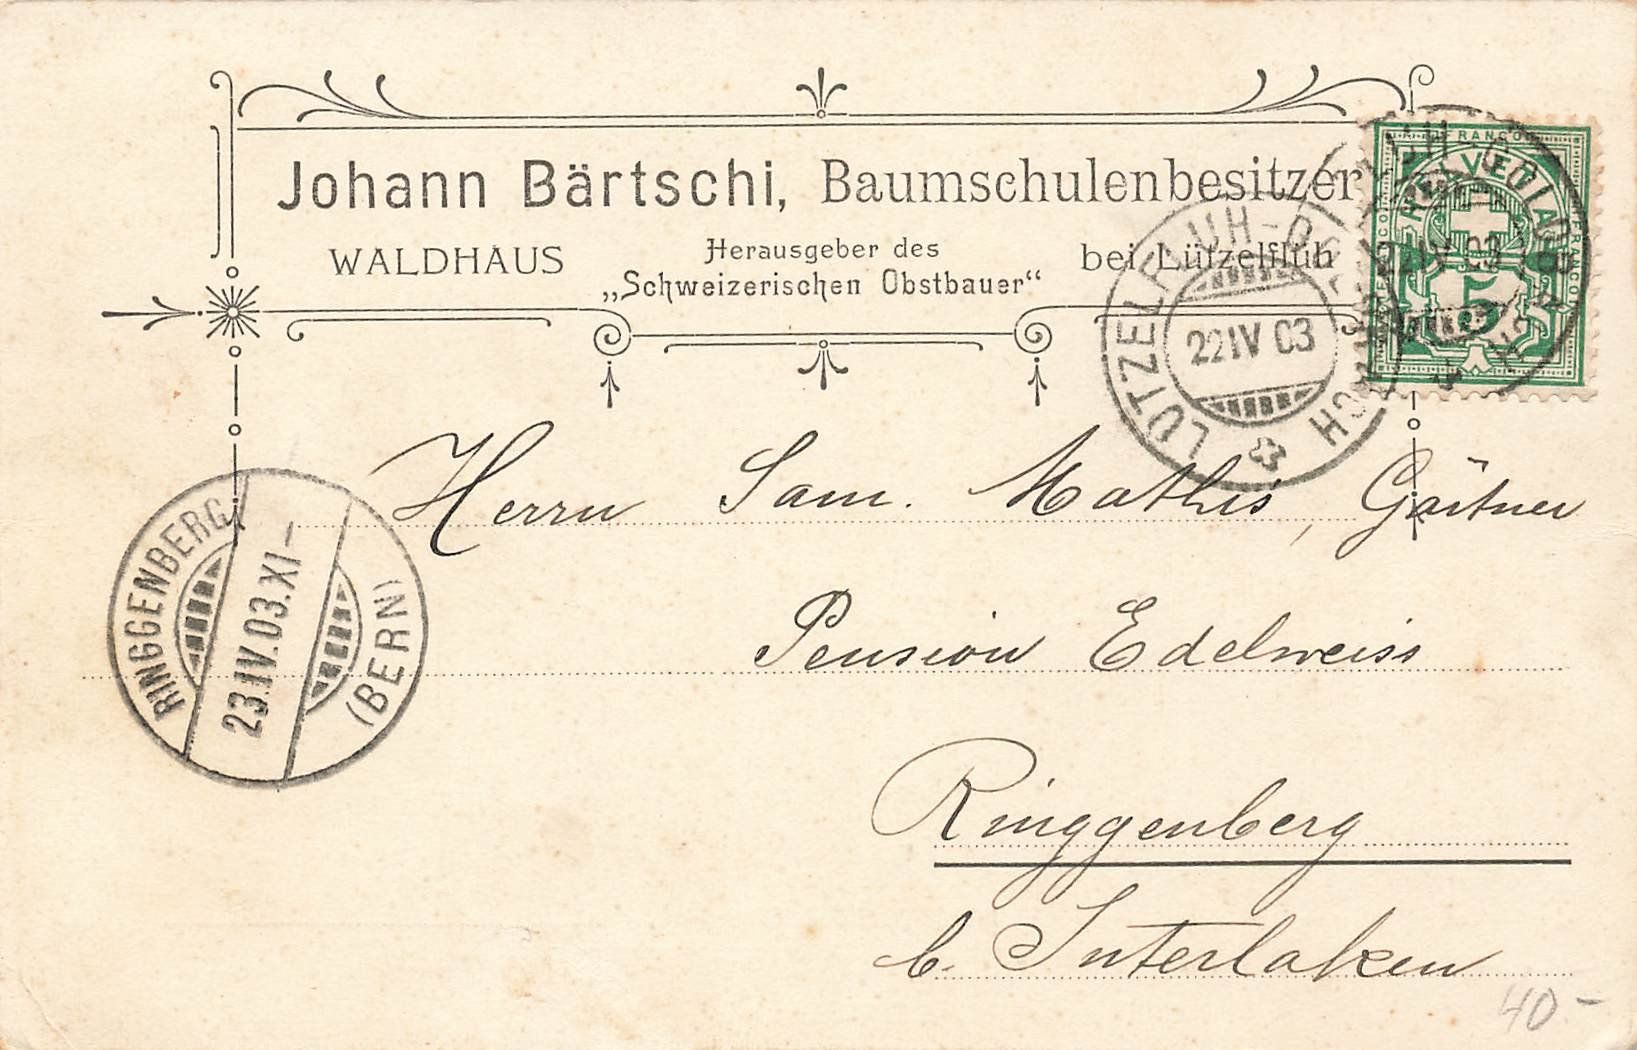 Johann Bärtschi, Baumschulenbesitzer
WALDHAUS
Herausgeber des
„Schweizerischen Obstbauer“
bei Lützelflüh
FRANCO
HELVETIA
FRANCO
5
LÜTZELFLÜH-GOLDBACH
22 IV 03
RINGGENBERG
(BERN)
23.IV.03.XI-
Herrn Sam. Mathis, Gärtner
Pension Edelweiss
Ringgenberg
b. Interlaken
40-